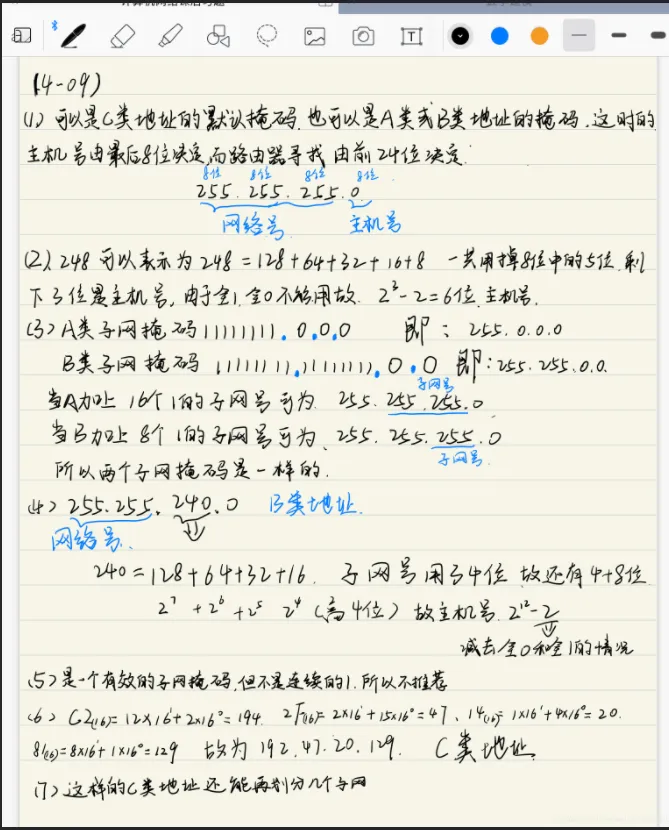 (4-09)
(1) 可以是C类地址的默认掩码.也可以是A类或B类地址的掩码.这时的
主机号由最后8位决定.而路由器寻找由前24位决定.
8位 8位 8位 8位
255.255.255.0
网络号 主机号
(2) 248 可以表示为 248=128+64+32+16+8 一共用掉8位中的5位.剩
下3位是主机号,由于全1,全0不能用故. 2³-2=6位.主机号.
(3) A类子网掩码 11111111.0.0.0 即: 255.0.0.0
B类子网掩码 11111111.11111111.0.0 即:255.255.0.0.
当A加上 16个1的子网号可为. 255.255.255.0
子网号
当B加上 8个1的子网号可为. 255.255.255.0
子网号.
所以两个子网掩码是一样的.
(4) 255.255.240.0 B类地址.
网络号.
240=128+64+32+16. 子网号用了4位 故还有4+8位.
2⁷+2⁶+2⁵ 2⁴ (高4位) 故主机号.2¹²-2
减去全0和全1的情况
(5) 是一个有效的子网掩码,但不是连续的1.所以不推荐
(6) C2(16)=12×16¹+2×16⁰=194. 2F(16)=2×16¹+15×16⁰=47、14(16)=1×16¹+4×16⁰=20.
81(16)=8×16¹+1×16⁰=129 故为 192.47.20.129. C类地址.
(7) 这样的C类地址还能再划分几个子网